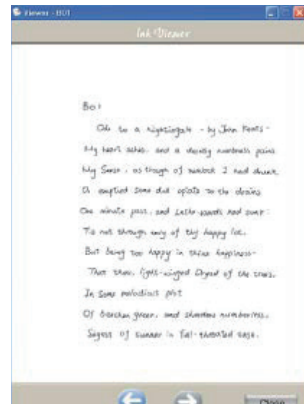 Viewer - 001
Ink Viewer
Ode to a nightingale - by John Keats -
My heart aches, and a drowsy numbness pains
My Sense, as though of hemlock I had drunk
Or emptied some dull opiate to the drains
One minute past, and Lethe-wards had sunk:
Tis not through envy of thy happy lot.
But being too happy in thine happiness-
That thou, light-winged Dryad of the trees.
In some melodious plot
Of beechen green, and shadows numberless,
of summer in full-throated ease.
Close